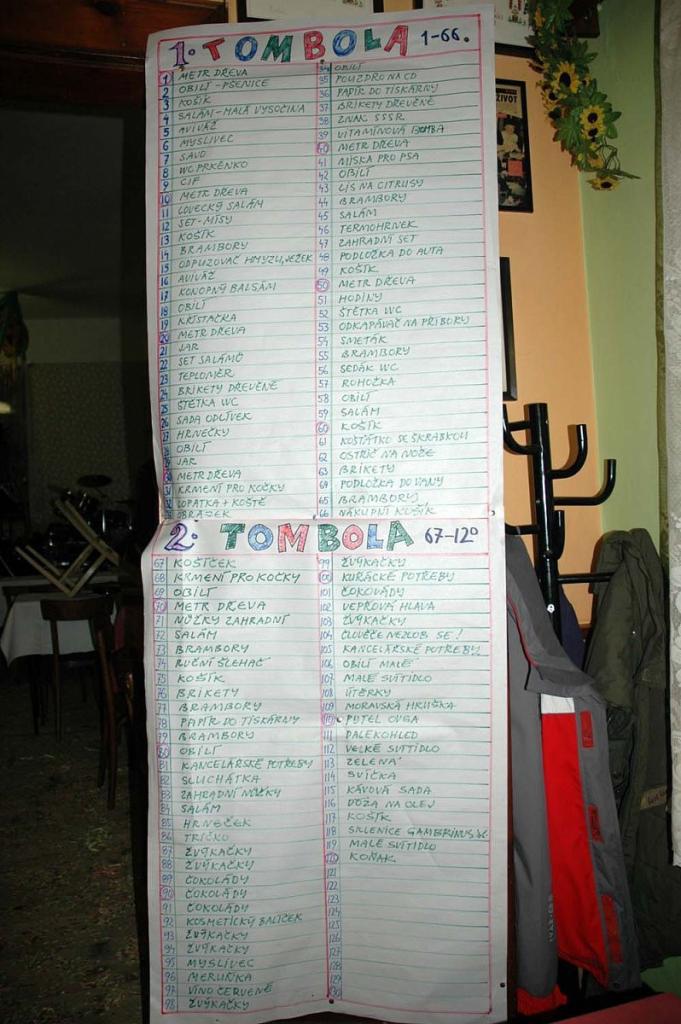 1. TOMBOLA 1-66.
1 METR DŘEVA
2 OBILÍ - PŠENICE
3 KOŠÍK
4 SALÁM - MALÁ VYSOČINA
5 AVIVÁŽ
6 MYSLIVEC
7 SAVO
8 WC PRKÉNKO
9 CIF
10 METR DŘEVA
11 LOVECKÝ SALÁM
12 SET - MÍSY
13 KOŠÍK
14 BRAMBORY
15 ODPUZOVAČ HMYZU, JEŽEK
16 AVIVÁŽ
17 KONOPNÝ BALSÁM
18 OBILÍ
19 KŘÍSTAČKA
20 METR DŘEVA
21 JAR
22 SET SALÁMŮ
23 TEPLOMĚR
24 BRIKETY DŘEVĚNÉ
25 ŠTĚTKA WC
26 SADA ODLIVEK
27 HRNEČKY
28 OBILÍ
29 JAR
30 METR DŘEVA
31 KRMENÍ PRO KOČKY
32 LOPATKA + KOŠTĚ
33 OBRÁZEK
34 OBILÍ
35 POUZDRO NA CD
36 PAPÍR DO TISKÁRNY
37 BRIKETY DŘEVĚNÉ
38 ZNAK SSSR
39 VITAMÍNOVÁ BOMBA
40 METR DŘEVA
41 MISKA PRO PSA
42 OBILÍ
43 LIS NA CITRUSY
44 BRAMBORY
45 SALÁM
46 TERMOHRNEK
47 ZAHRADNÍ SET
48 PODLOŽKA DO AUTA
49 KOŠÍK
50 METR DŘEVA
51 HODINY
52 ŠTĚTKA WC
53 ODKAPÁVAČ NA PŘÍBORY
54 SMETÁK
55 BRAMBORY
56 SEDÁK WC
57 ROHOŽKA
58 OBILÍ
59 SALÁM
60 KOŠÍK
61 KOŠŤÁTKO SE ŠKRABKOU
62 OSTŘIČ NA NOŽE
63 BRIKETY
64 PODLOŽKA DO VANY
65 BRAMBORY
66 NÁKUPNÍ KOŠÍK
2. TOMBOLA 67-120
67 KOŠÍČEK
68 KRMENÍ PRO KOČKY
69 OBILÍ
70 METR DŘEVA
71 NŮŽKY ZAHRADNÍ
72 SALÁM
73 BRAMBORY
74 RUČNÍ ŠLEHAČ
75 KOŠÍK
76 BRIKETY
77 BRAMBORY
78 PAPÍR DO TISKÁRNY
79 BRAMBORY
80 OBILÍ
81 KANCELÁŘSKÉ POTŘEBY
82 SLUCHÁTKA
83 ZAHRADNÍ NŮŽKY
84 SALÁM
85 HRNEČEK
86 TRIČKO
87 ŽVÝKAČKY
88 ŽVÝKAČKY
89 ČOKOLÁDY
90 ČOKOLÁDY
91 ČOKOLÁDY
92 KOSMETICKÝ BALÍČEK
93 ŽVÝKAČKY
94 ŽVÝKAČKY
95 MYSLIVEC
96 MERUŇKA
97 VÍNO ČERVENÉ
98 ŽVÝKAČKY
99 ŽVÝKAČKY
100 KUŘÁCKÉ POTŘEBY
101 ČOKOVÁDY
102 VEPŘOVÁ HLAVA
103 ŽVÝKAČKY
104 ČLOVĚČE NEZLOB SE!
105 KANCELÁŘSKÉ POTŘEBY
106 OBILÍ MALÉ
107 MALÉ SVÍTIDLO
108 UTĚRKY
109 MORAVSKÁ HRUŠKA
110 PYTEL OVSA
111 DALEKOHLED
112 VELKÉ SVÍTIDLO
113 ZELENÁ
114 SVÍČKA
115 KÁVOVÁ SADA
116 DÓZA NA OLEJ
117 KOŠÍK
118 SKLENICE GAMBRINUS
119 MALÉ SVÍTIDLO
120 KOŇAK
121
122
123
124
125
126
127
128
129
130
ŽIVOT